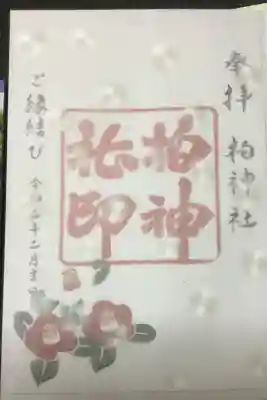 奉拝 柏神社
柏神
社印
ご縁結び
令和 十二月吉日